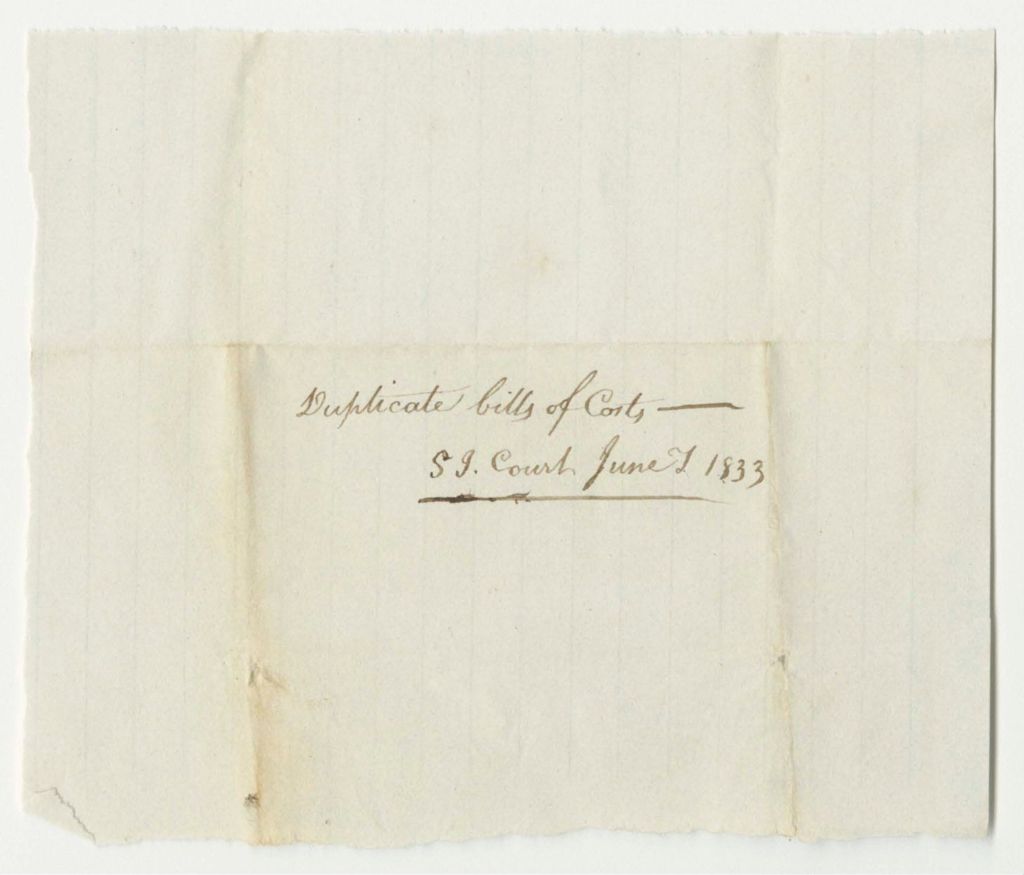 Duplicate bills of Costs —
S J. Court June T 1833